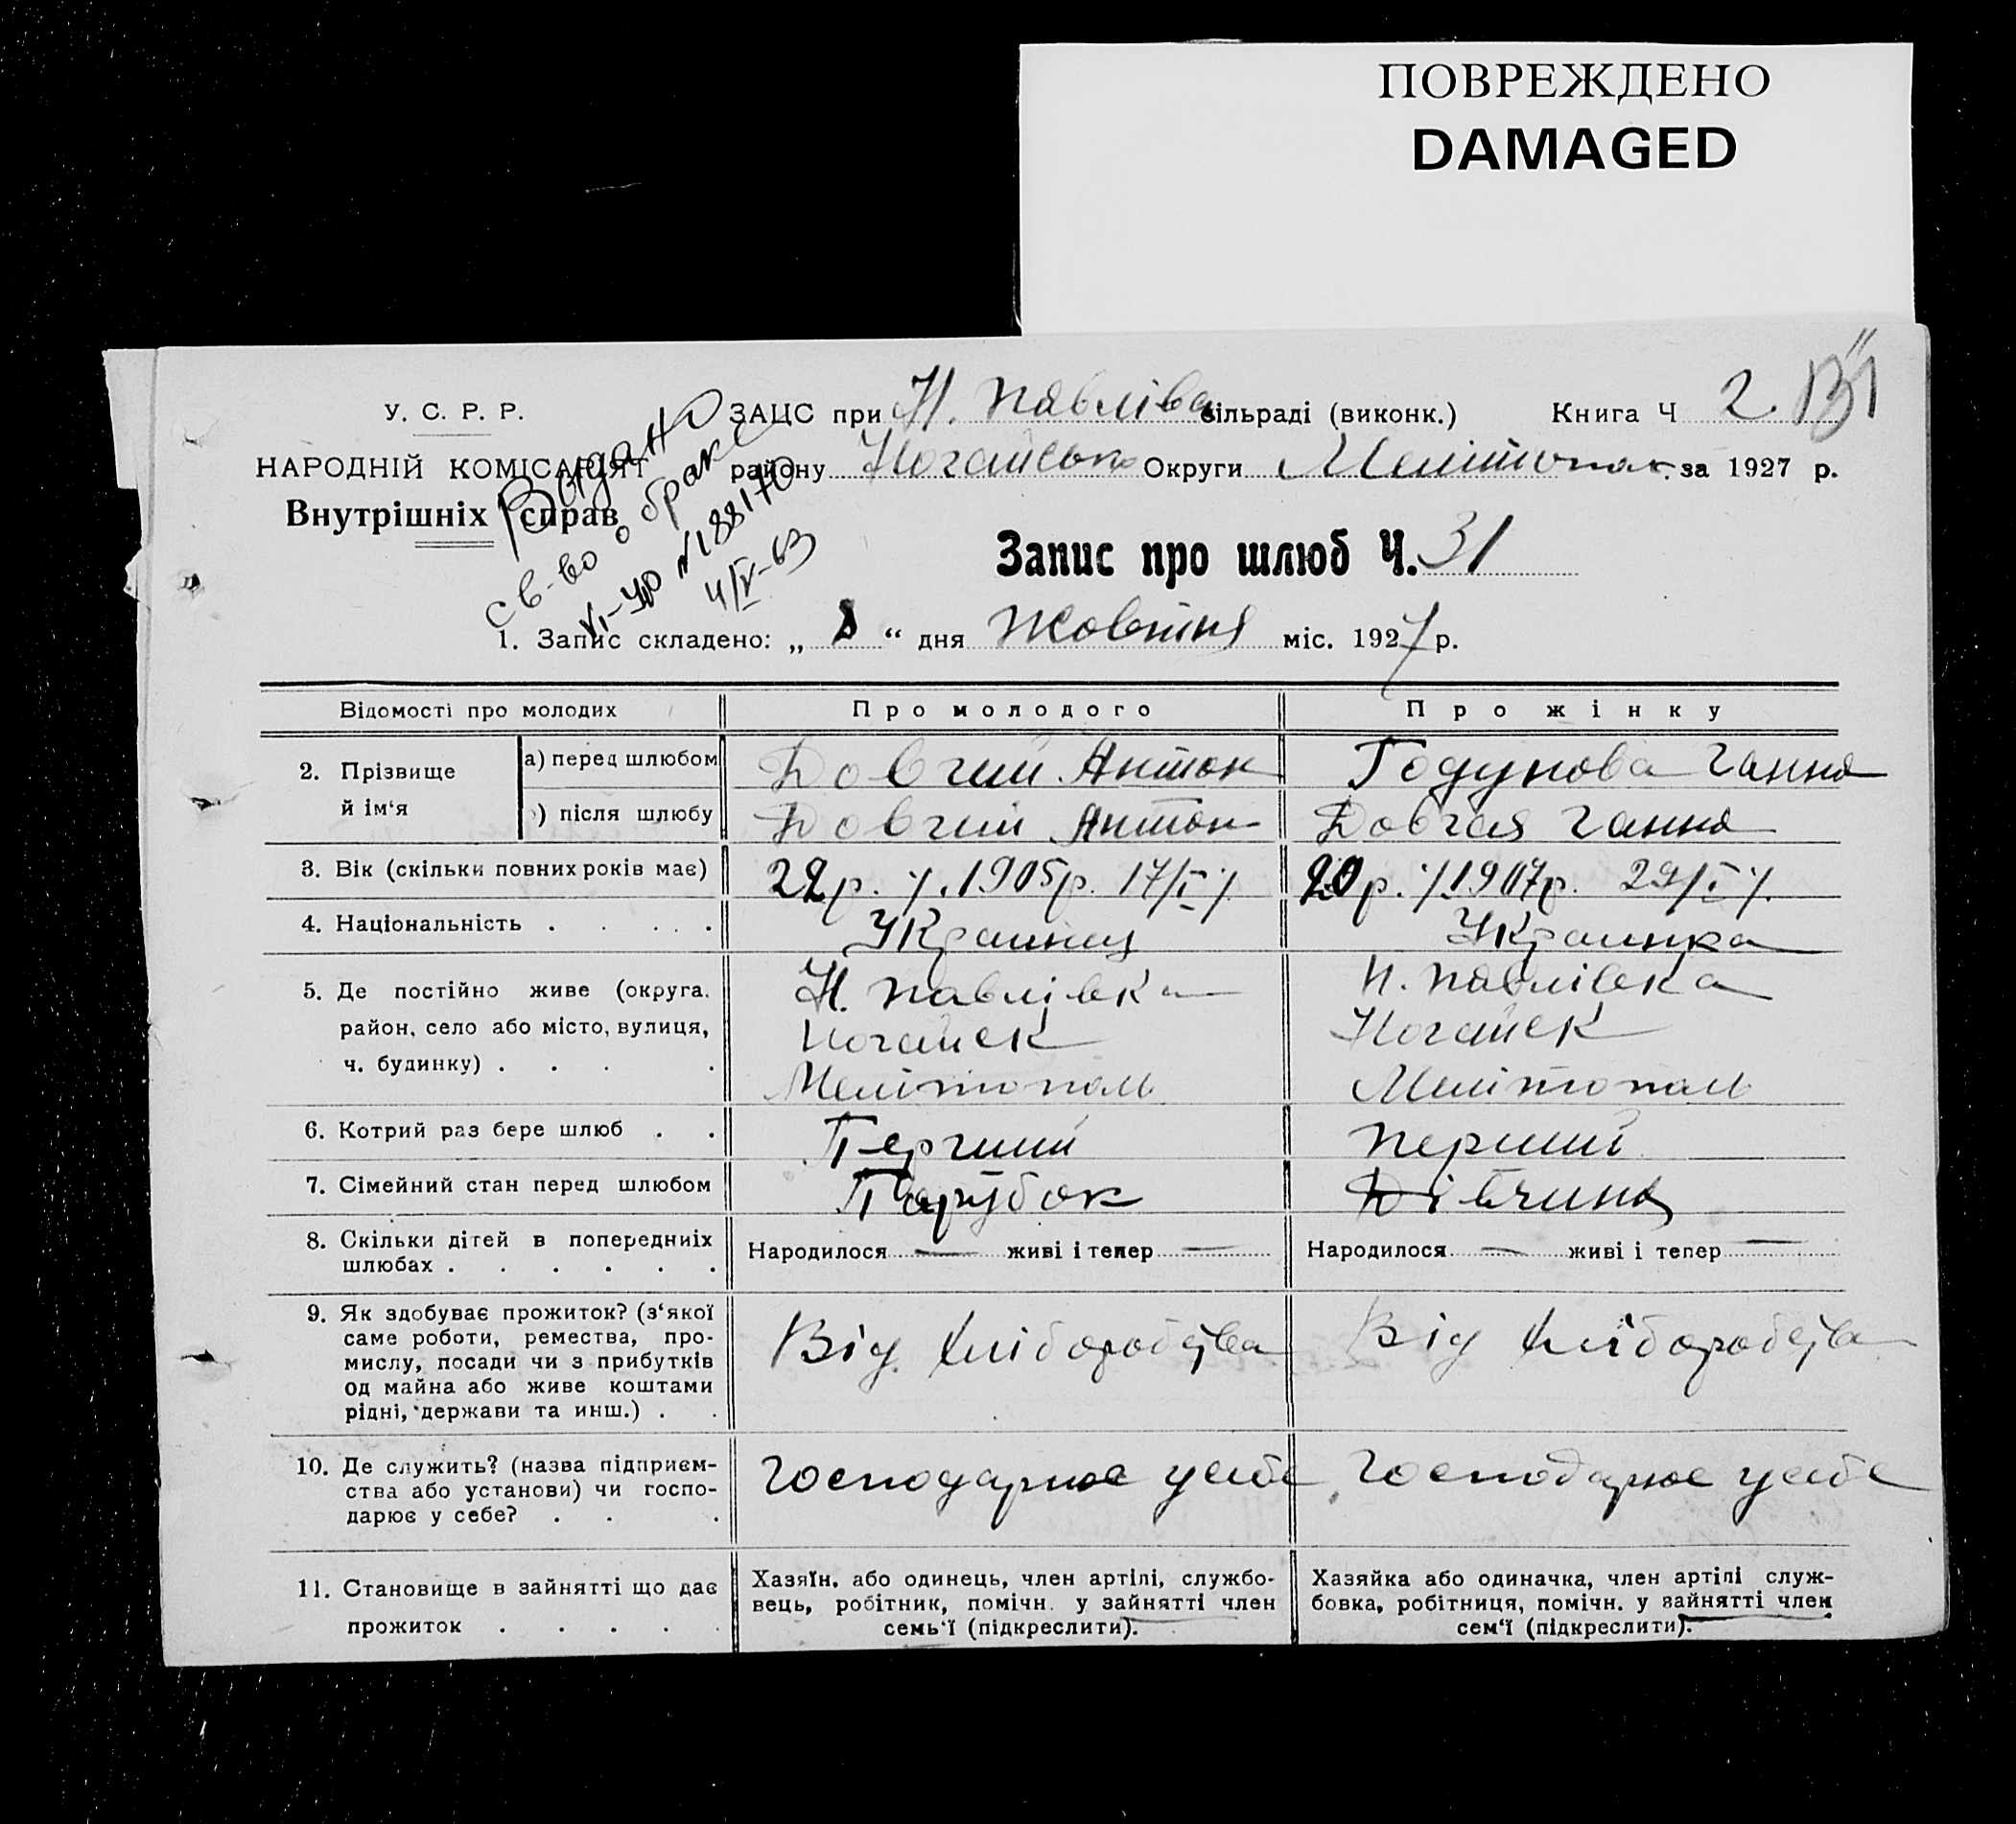 ПОВРЕЖДЕНО
DAMAGED
У. С. Р. Р.
НАРОДНІЙ КОМІСАРІЯТ
Внутрішніх справ
Видано
св-во о браке
VI-УР №188170
4/IV-63
ЗАЦС при Н. Павлівка сільраді (виконк.) Книга Ч 2.
району Ногайсько Округи Мелітопол. за 1927 р.
Запис про шлюб Ч. 31
1. Запис складено: „ 8 “ дня Жовтня міс. 1927 р.
Відомості про молодих Про молодого Про жінку
2. Прізвище й ім‘я
а) перед шлюбом Довгий Антон Годунова Ганна
) після шлюбу Довгий Антон Довгая Ганна
3. Вік (скільки повних років має) 22 р. 1905 р. 17/I 20 р. 1907 р. 29/I
4. Національність . . . . . Украинец Украинка
5. Де постійно живе (округа, Н. Павлівка Н. Павлівка
район, село або місто, вулиця, Ногайск Ногайск
ч. будинку) . . . . Мелітополь Мелітополь
6. Котрий раз бере шлюб . . Перший Перший
7. Сімейний стан перед шлюбом Парубок Дівчина
8. Скільки дітей в попередниіх Народилося — живі і тепер — Народилося — живі і тепер —
шлюбах . . . . . .
9. Як здобуває прожиток? (з‘якої
саме роботи, ремества, про-
мислу, посади чи з прибутків
од майна або живе коштами
рідні, держави та инш.) . .
Від хліборобства Від хліборобства
10. Де служить? (назва підприєм-
ства або установи) чи госпо-
дарює у себе? . . .
Господарює у себе Господарює у себе
11. Становище в зайнятті що дає
прожиток . . . . .
Хазяїн, або одинець, член артілі, службо-
вець, робітник, помічн. у зайнятті член
семь‘ї (підкреслити).
Хазяйка або одиначка, член артілі служ-
бовка, робітниця, помічн. у зайнятті член
сем‘ї (підкреслити).